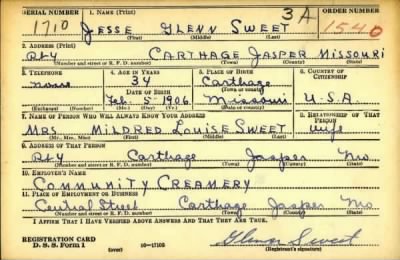 SERIAL NUMBER 1. NAME (Print) 3A ORDER NUMBER
1710 JESSE GLENN SWEET 1540
(First) (Middle) (Last)
2. ADDRESS (Print)
R#4 CARTHAGE JASPER MISSOURI
(Number and street or R. F. D. number) (Town) (County) (State)
3. TELEPHONE 4. AGE IN YEARS 5. PLACE OF BIRTH 6. COUNTRY OF CITIZENSHIP
none 34 Carthage
DATE OF BIRTH (Town or county)
Feb. 5 1906 Missouri U.S.A
(Exchange) (Number) (Mo.) (Day) (Yr.) (State or country)
7. NAME OF PERSON WHO WILL ALWAYS KNOW YOUR ADDRESS 8. RELATIONSHIP OF THAT PERSON
MRS. MILDRED LOUISE SWEET wife
(Mr., Mrs., Miss) (First) (Middle) (Last)
9. ADDRESS OF THAT PERSON
R#4 Carthage Jasper Mo
(Number and street or R. F. D. number) (Town) (County) (State)
10. EMPLOYER'S NAME
COMMUNITY CREAMERY
11. PLACE OF EMPLOYMENT OR BUSINESS
Central Street Carthage Jasper Mo
(Number and street or R. F. D. number) (Town) (County) (State)
I AFFIRM THAT I HAVE VERIFIED ABOVE ANSWERS AND THAT THEY ARE TRUE.
REGISTRATION CARD
D. S. S. Form 1 (over) 16-17105 Glenn Sweet
(Registrant's signature)